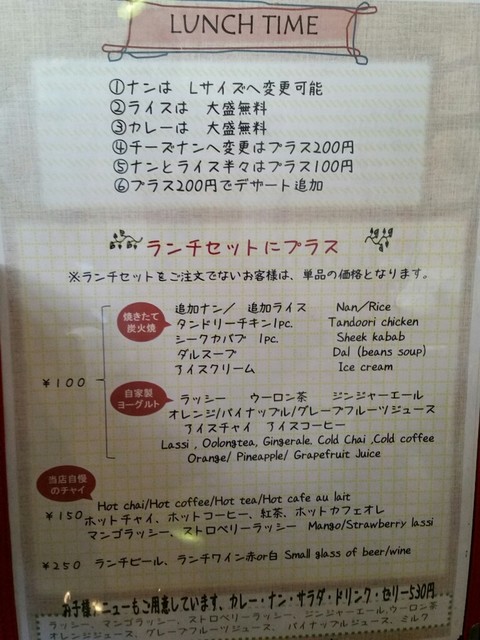 LUNCH TIME
①ナンは Lサイズへ変更可能
②ライスは 大盛無料
③カレーは 大盛無料
④チーズナンへ変更はプラス200円
⑤ナンとライス半々はプラス100円
⑥プラス200円でデザート追加
ランチセットにプラス
※ランチセットをご注文でないお客様は、単品の価格となります。
焼きたて
炭火焼
追加ナン／ 追加ライス Nan／Rice
タンドリーチキン1pc. Tandoori chicken
シークカバブ 1pc. Sheek kabab
ダルスープ Dal (beans soup)
アイスクリーム Ice cream
¥100
自家製
ヨーグルト
ラッシー ウーロン茶 ジンジャーエール
オレンジ/パイナップル/グレープフルーツジュース
アイスチャイ アイスコーヒー
Lassi , Oolongtea, Gingerale, Cold Chai ,Cold coffee
Orange/ Pineapple/ Grapefruit Juice
当店自慢
のチャイ
Hot chai/Hot coffee/Hot tea/Hot cafe au lait
¥150 ホットチャイ、ホットコーヒー、紅茶、ホットカフェオレ
マンゴラッシー、ストロベリーラッシー Mango/Strawberry lassi
¥250 ランチビール、ランチワイン赤or白 Small glass of beer/wine
お子様メニューもご用意しています、カレー・ナン・サラダ・ドリンク・ゼリー530円
ラッシー、マンゴラッシー、ストロベリーラッシー、ジンジャーエール,ウーロン茶
オレンジジュース、グレープフルーツジュース、パイナップルジュース、ミルク